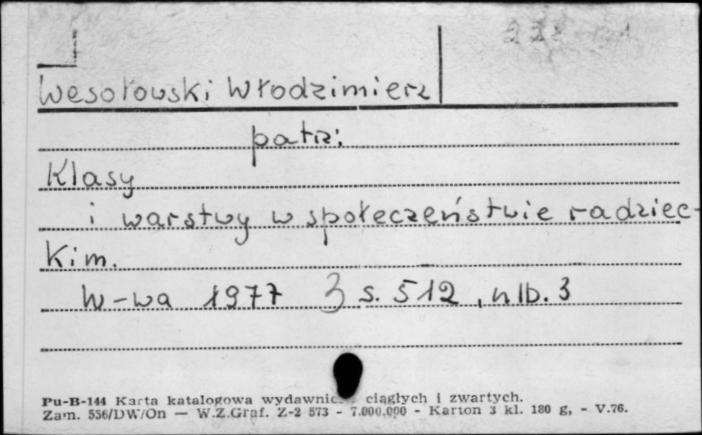 Wesołowski Włodzimierz
patrz:
Klasy
i warstwy w społeczeństwie radziec-
kim.
W-wa 1977 3 s. 512, nlb. 3
Pu-B-144 Karta katalogowa wydawnic ciągłych i zwartych.
Zam. 556/DW/On — W.Z.Graf. Z-2 573 - 7.000.000 - Karton 3 kl. 180 g, - V.76.